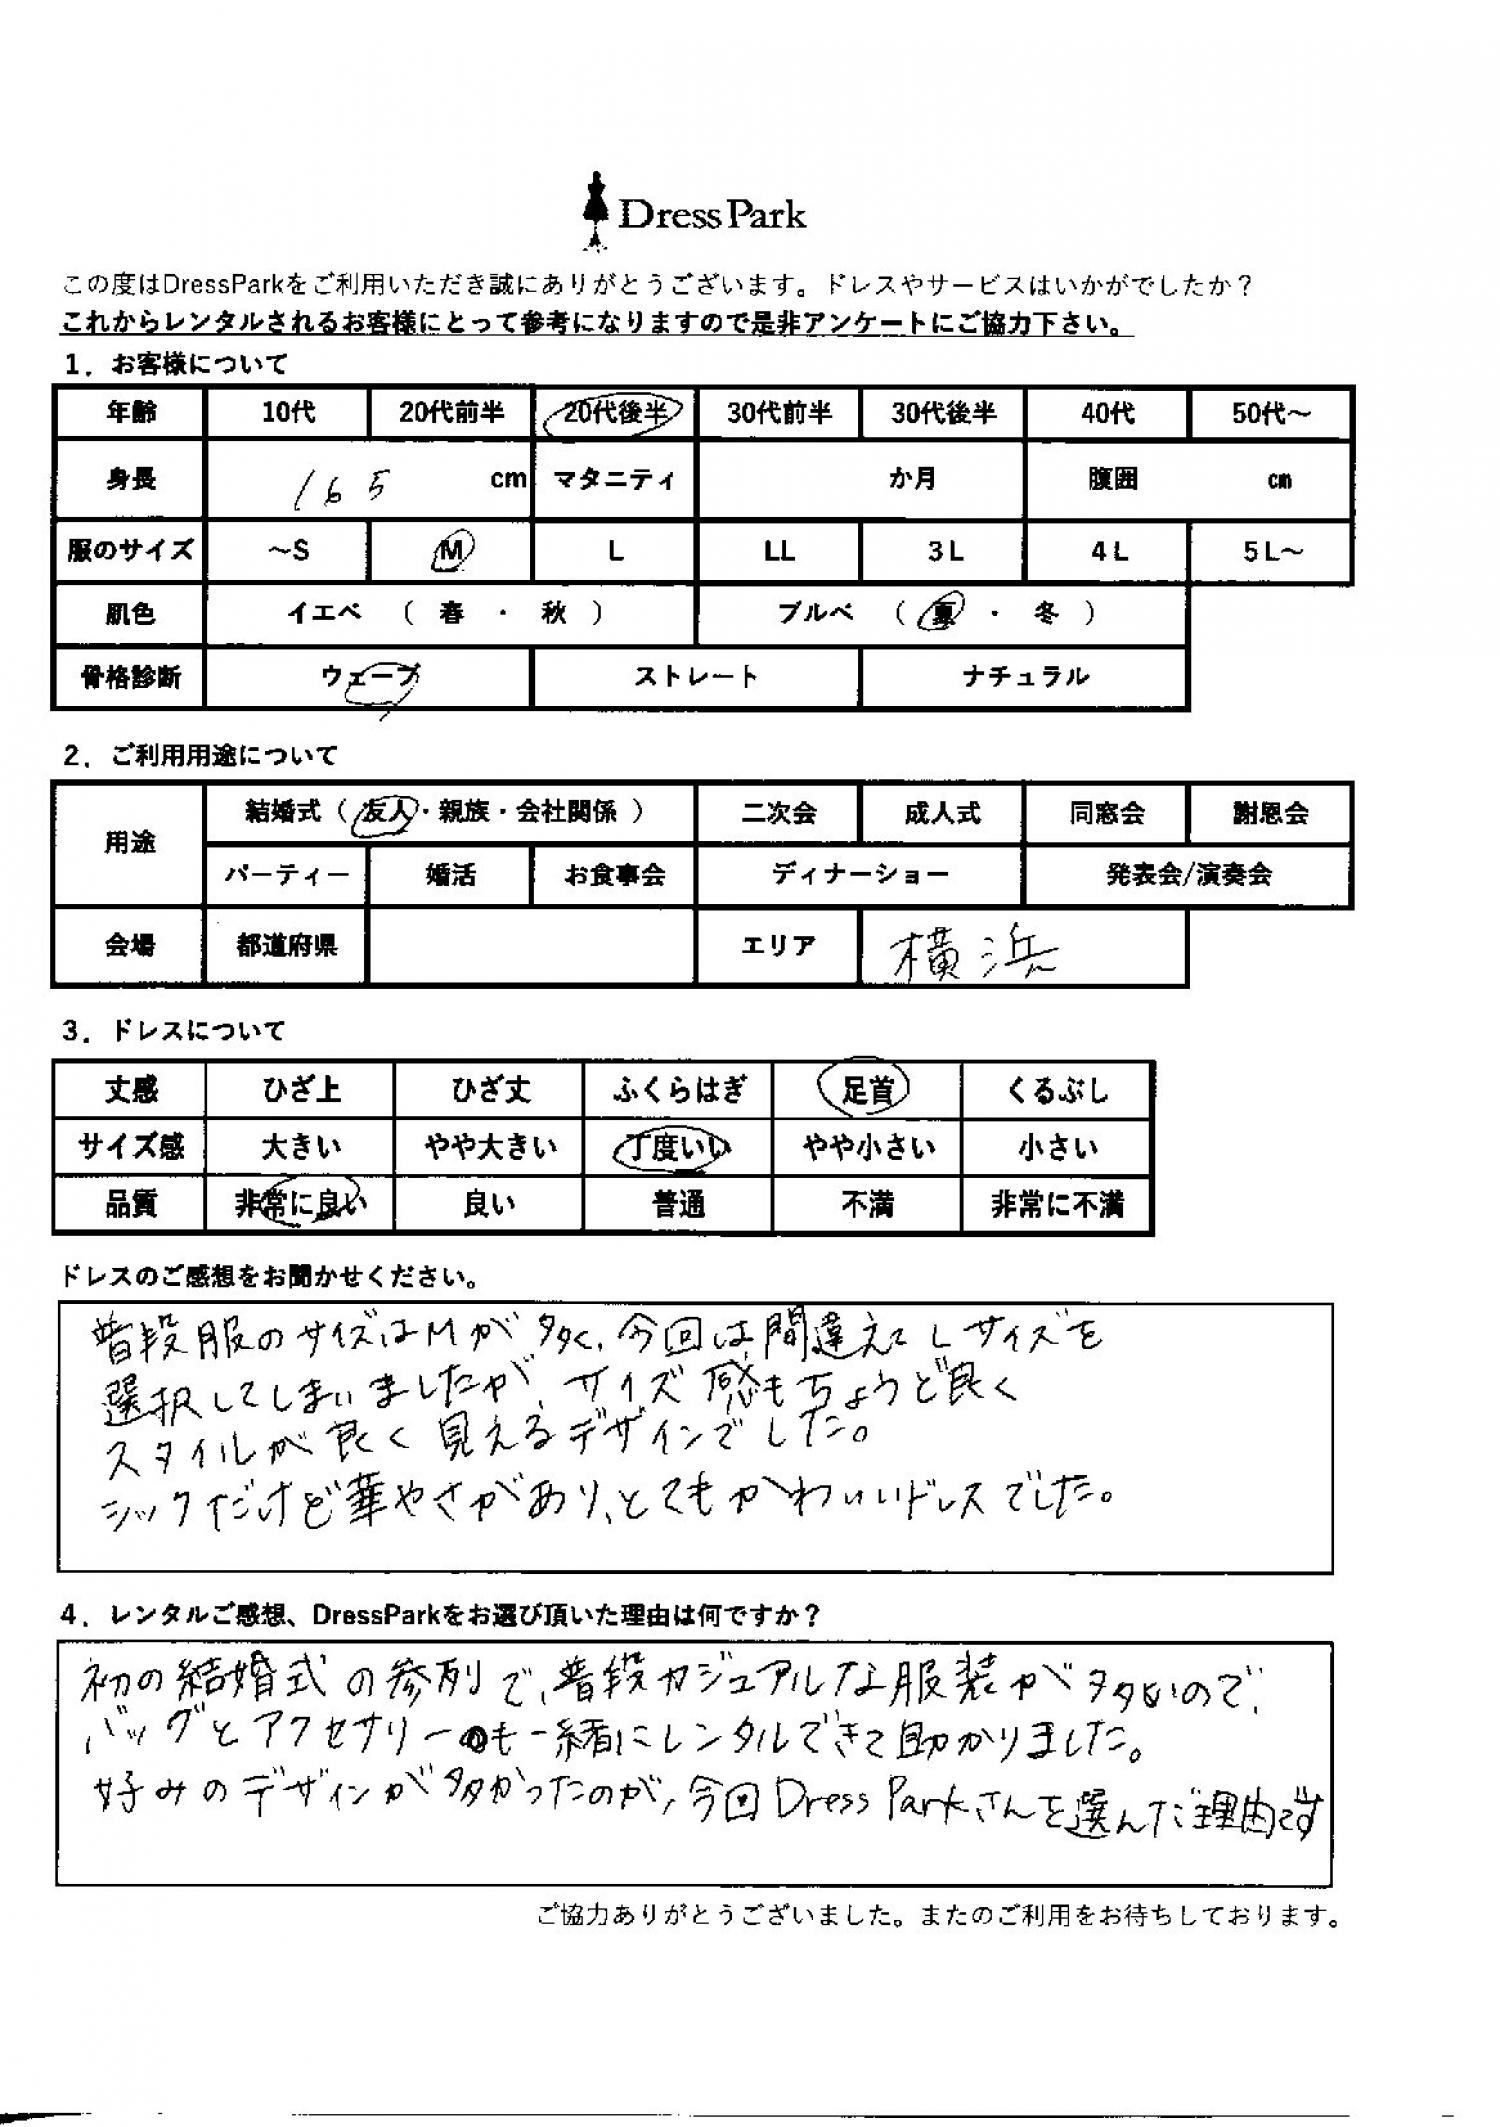 Dress Park
この度はDressParkをご利用いただき誠にありがとうございます。ドレスやサービスはいかがでしたか？
これからレンタルされるお客様にとって参考になりますので是非アンケートにご協力下さい。
1．お客様について
年齢 10代 20代前半 20代後半 30代前半 30代後半 40代 50代～
身長 165 cm マタニティ か月 腹囲 cm
服のサイズ ～S M L LL 3L 4L 5L～
肌色 イエベ （ 春 ・ 秋 ） ブルベ （ 夏 ・ 冬 ）
骨格診断 ウェーブ ストレート ナチュラル
2．ご利用用途について
用途 結婚式（ 友人・親族・会社関係 ） 二次会 成人式 同窓会 謝恩会
パーティー 婚活 お食事会 ディナーショー 発表会/演奏会
会場 都道府県 エリア 横浜
3．ドレスについて
丈感 ひざ上 ひざ丈 ふくらはぎ 足首 くるぶし
サイズ感 大きい やや大きい 丁度いい やや小さい 小さい
品質 非常に良い 良い 普通 不満 非常に不満
ドレスのご感想をお聞かせください。
普段服のサイズはMが多く、今回は間違えてLサイズを
選択してしまいましたが、サイズ感もちょうど良く
スタイルが良く見えるデザインでした。
シックだけど華やさがあり、とてもかわいいドレスでした。
4．レンタルご感想、DressParkをお選び頂いた理由は何ですか？
初の結婚式の参列で、普段カジュアルな服装が多いので、
バッグとアクセサリーも一緒にレンタルできて助かりました。
好みのデザインが多かったのが、今回Dress Parkさんを選んだ理由です
ご協力ありがとうございました。またのご利用をお待ちしております。